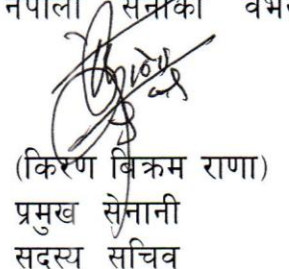 नेपाली सेनाको
(किरण बिक्रम राणा)
प्रमुख सेनानी
सदस्य सचिव